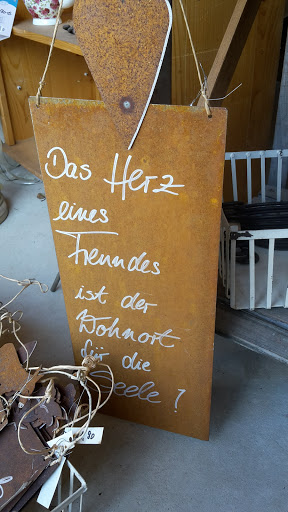 Das Herz
eines
Freundes
ist der
Wohnort
für die
Seele!